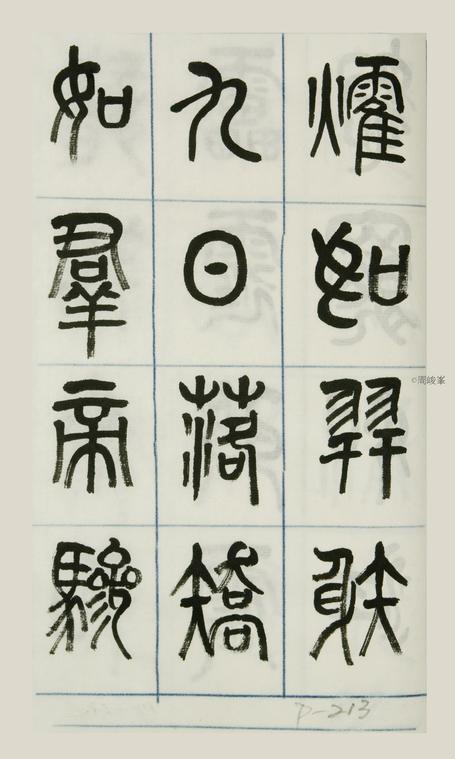 㸌如羿䠶
九日落矯
如羣帝驂
P-213
©周峻峯